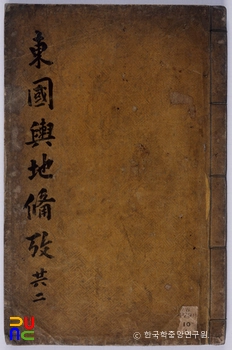 東國輿地備攷 共二
© 한국학중앙연구원